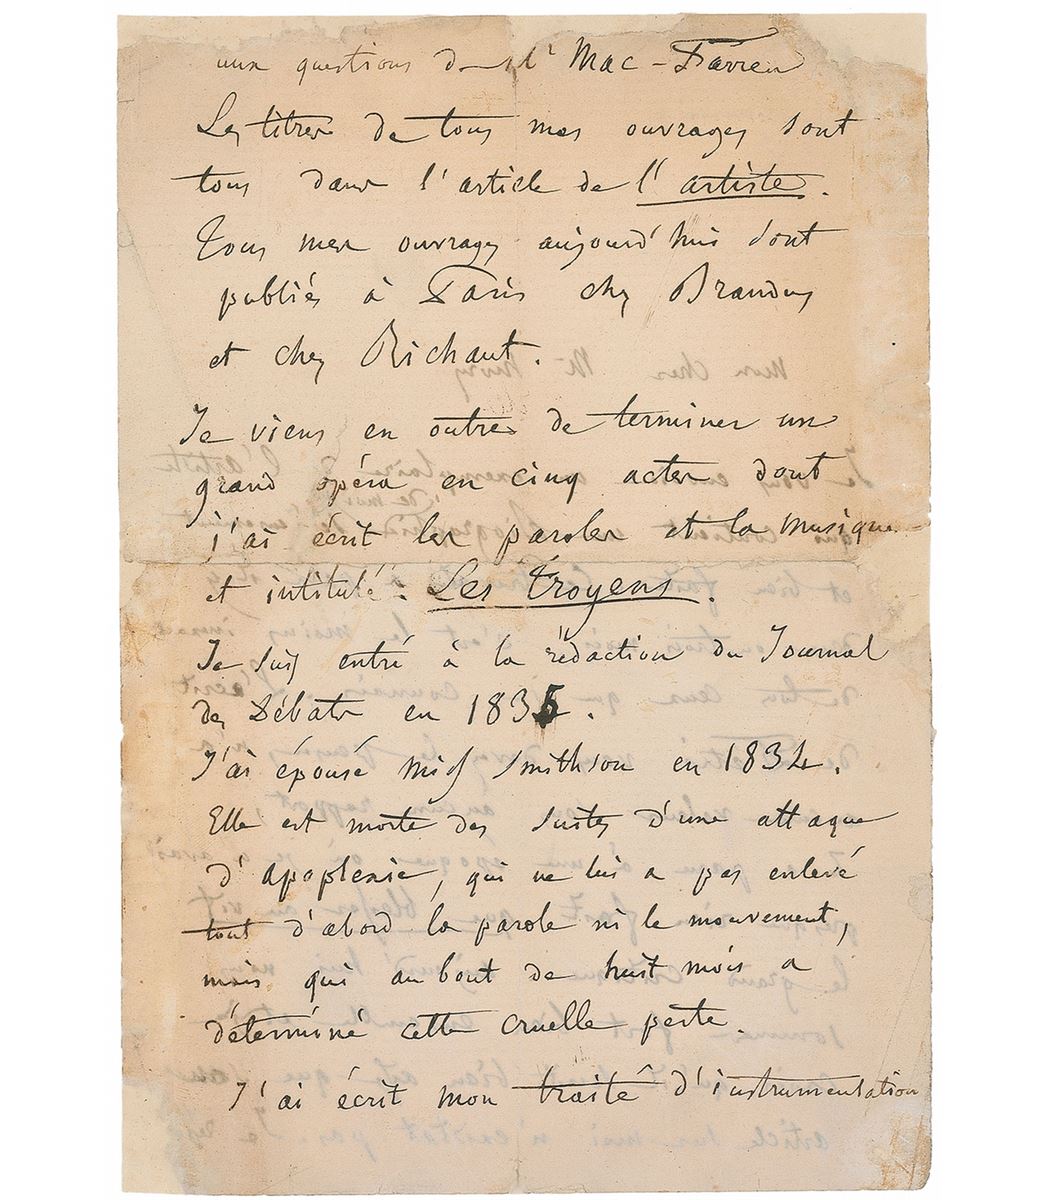 aux questions de Mr Mac-Farren
Les titres de tous mes ouvrages sont
tous dans l'article de l'artiste.
Tous mes ouvrages aujourd'hui sont
publiés à Paris chez Brandus
et chez Richaut.
Je viens en outre de terminer un
grand opéra en cinq actes dont
j'ai écrit les paroles et la musique
et intitulé : Les Troyens.
Je suis entré à la rédaction du Journal
des Débats en 1835.
J'ai épousé Miss Smithson en 1834.
Elle est morte des suites d'une attaque
d'apoplexie, qui ne lui a pas enlevé
tout d'abord la parole ni le mouvement,
mais qui au bout de huit mois a
déterminé cette cruelle perte.
J'ai écrit mon traité d'instrumentation